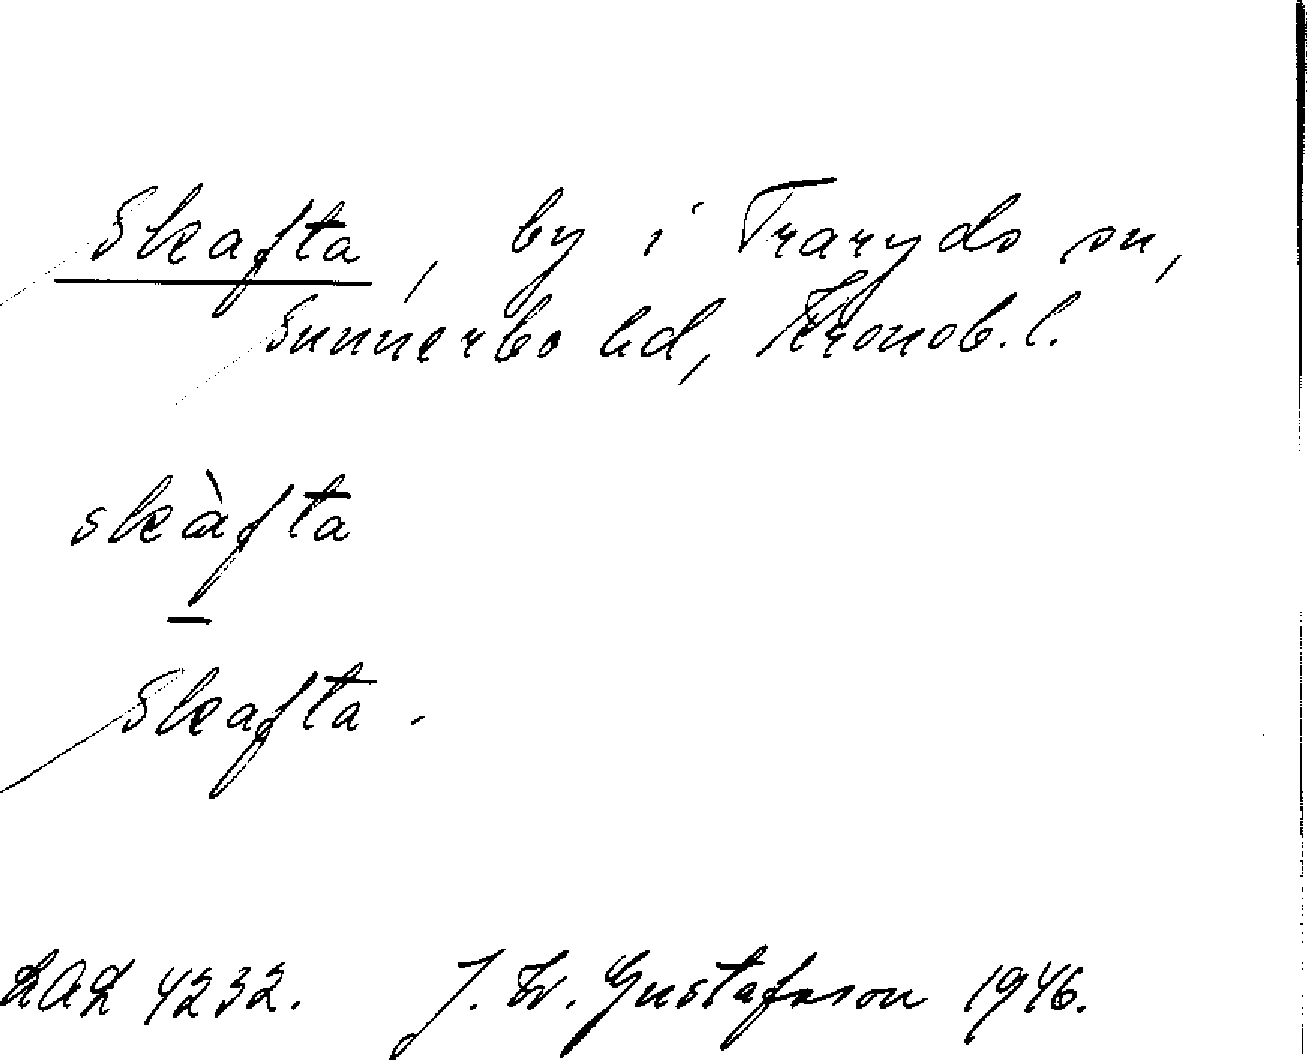 Skafta, by i Traryds sn,
Sunnerbo hd, Kronob. l.
skàfta
Skafta.
LAL 4232. J. Kr. Gustafsson 1946.